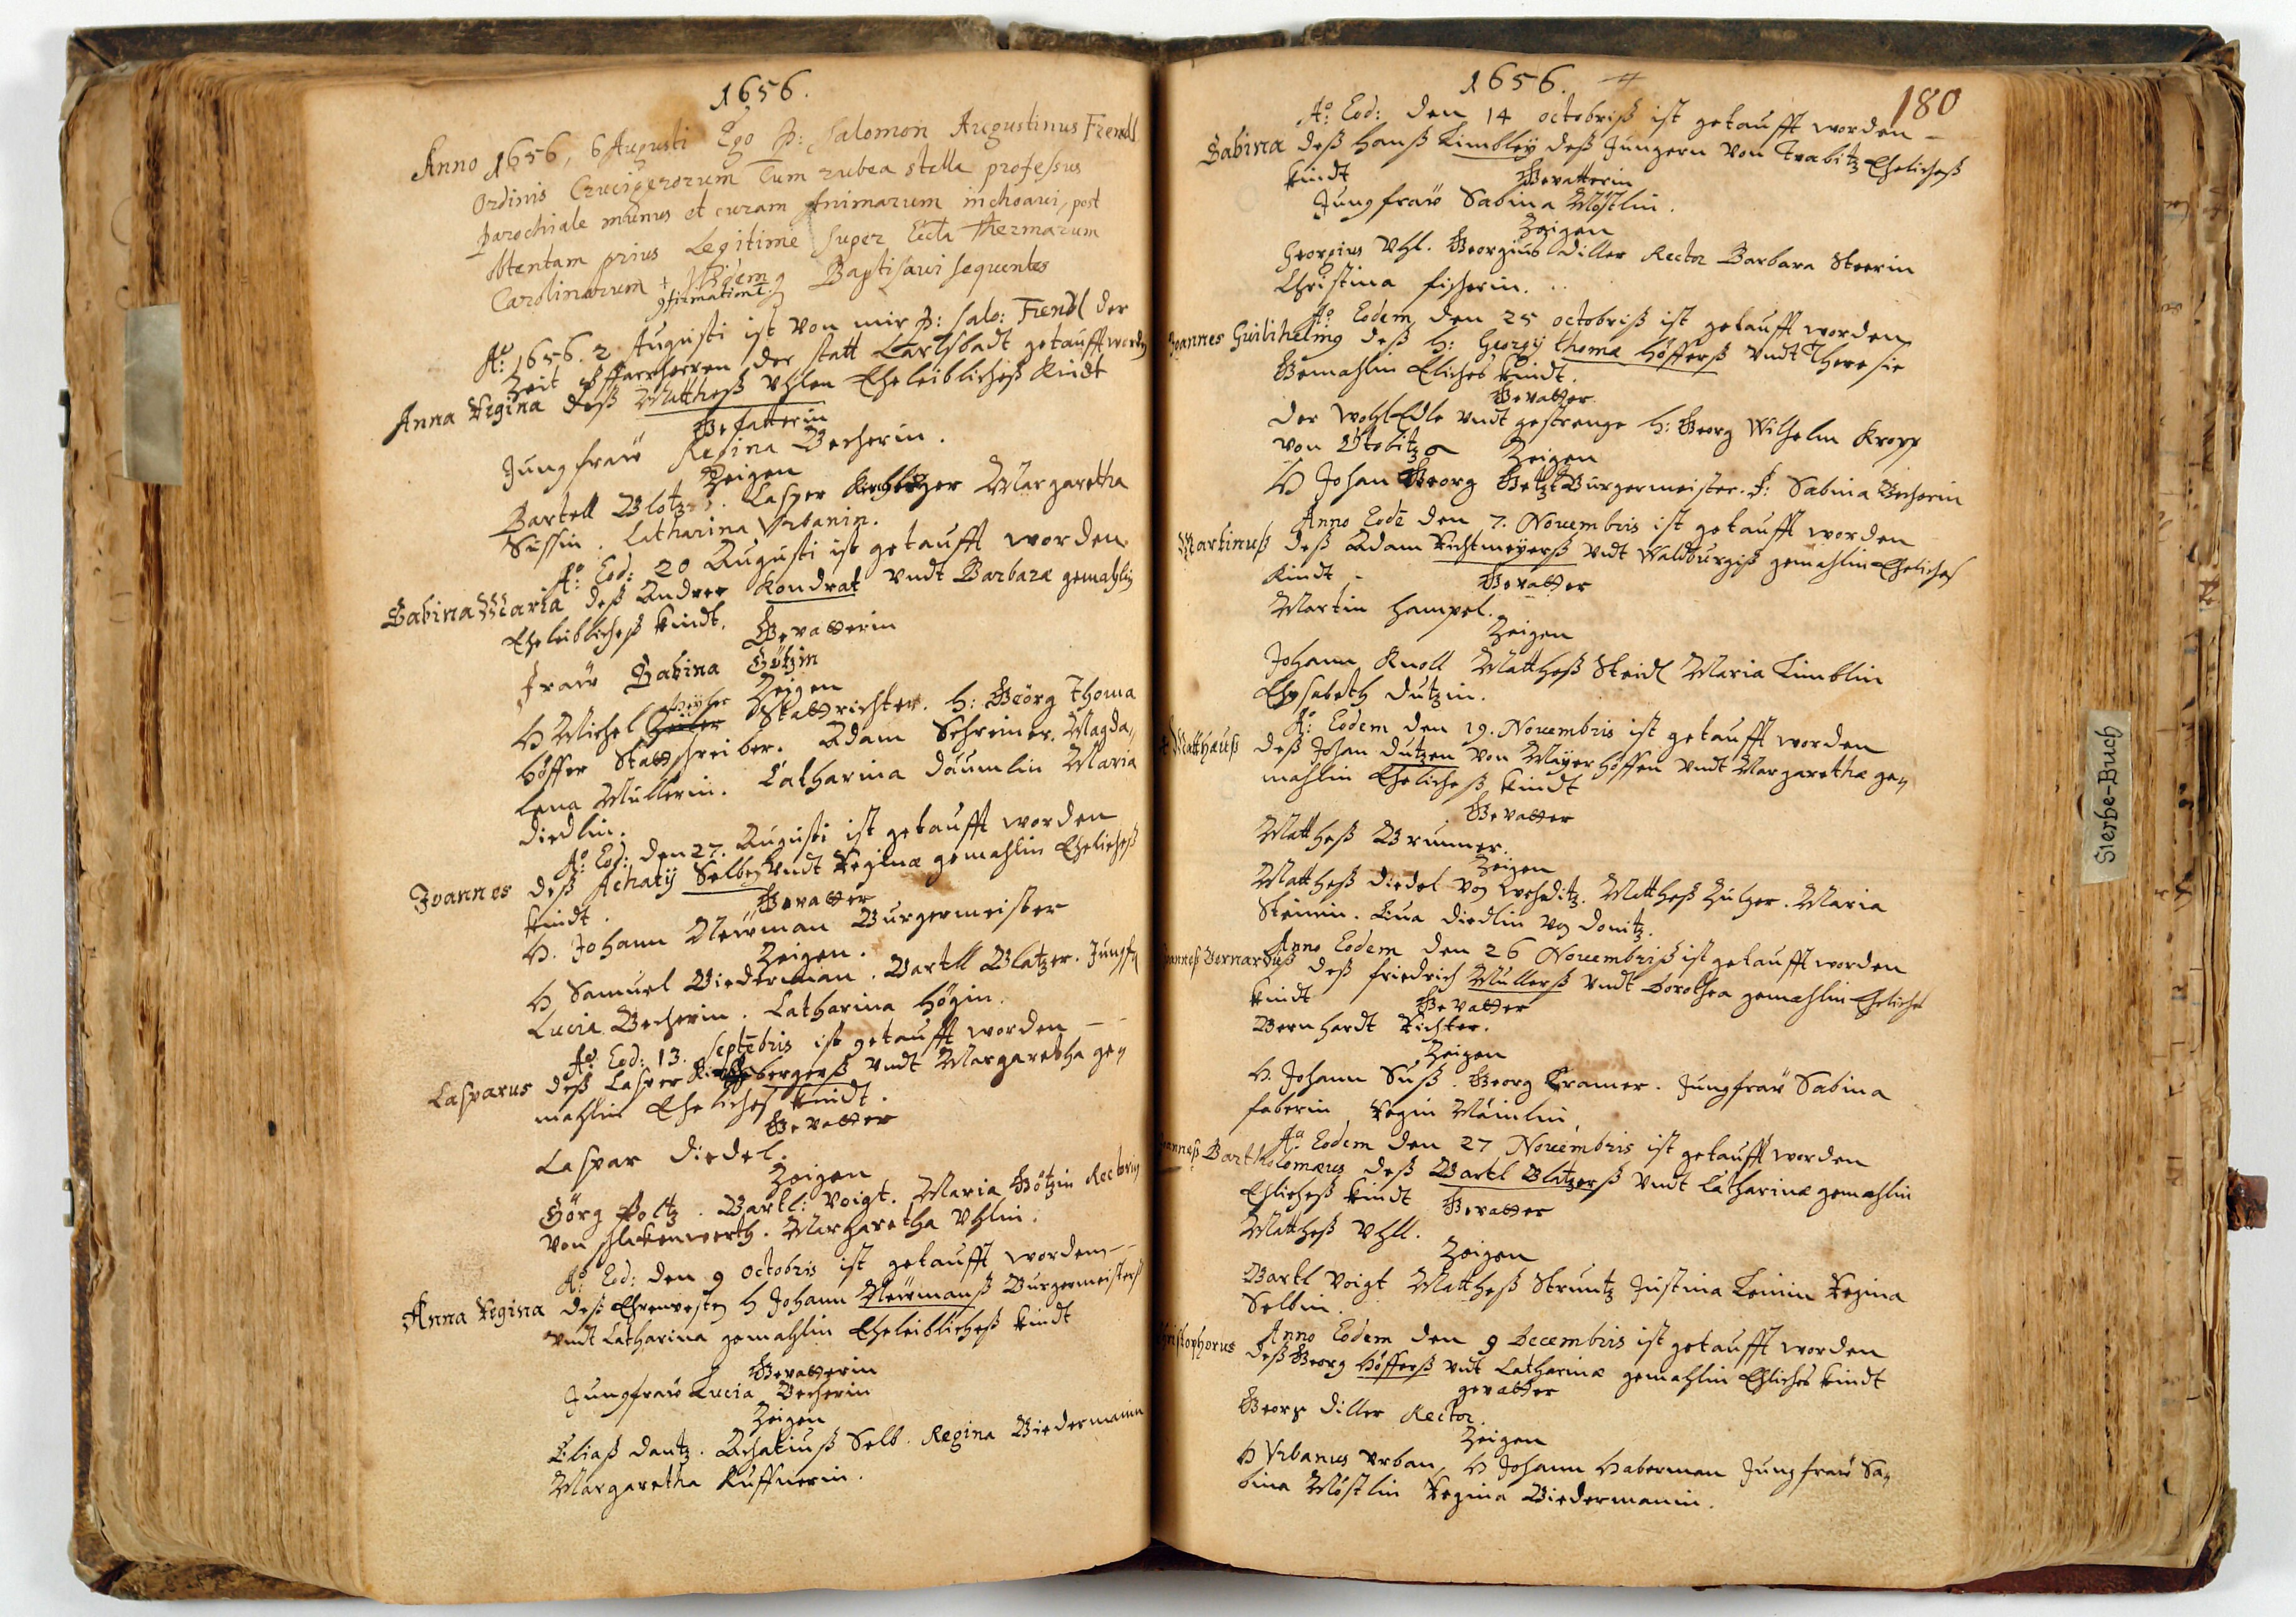 1656.
Anno 1656, 6 Augusti Ego P: Salomon Augustinus Frendl
Ordinis Crucigerorum Cum rubea stella professus
parochiale munus et curam Animarum inchoavi, post
obtentam prius Legitime super Eccla Thermarum
Carolinarum + Ibidemq Baptisavi sequentes
9firmatione.
Aº: 1656. 2 Augusti ist von mir P: Salo: Frendl der
Zeit Pfarrherren der statt Carlsbadt getaufft worden
Anna Regina deß Mattheß Uhlen Eheleibliches Kindt
Gefatterin
Jungfraw Regina Becherin.
Zeigen
Bartell Casper Margaretha
Süssin. Catharina Urbanin.
Aº: Eod: 20 Augusti ist getaufft worden
Sabina Maria deß Andree Kondrat undt Barbaræ gemahlin
Eheleibliches Kindt.
Gevatterin
Fraw Sabina Götzin
Zeigen
H Michel Stattrichter. H: Geörg Thoma
Höffer Stattschreiber. Adam Schreiner. Magda,,
lena Müllerin. Catharina Däumlin Maria
Diedlin.
Aº: Eod: den 27. Augusti ist getaufft worden
Joannes deß Achatij Selben undt Reginæ gemahlin Eheliches
Kindt.
Gevatter
H. Johann Newman Burgermeister
Zeigen.
H Samuel Biederman. Bartll Blatzer. Jungfr
Lucia Becherin. Catharina Högin.
Aº: Eod: 13. Septebris ist getaufft worden
Casparus deß Casper bergerß undt Margaretha ge,,
mahlin Eheliches Kindt.
Gevatter
Caspar Diedel.
Zeigen
Görg Poltz. Bartl: Voigt. Maria Götzin Rectorin
von Schlackenwerth. Marharetha Uhlin.
Aº: Eod: den 9 octobris ist getaufft worden
Anna Regina deß Ehrenvesten H Johann Newmanß Burgermeisterß
undt Catharina gemahlin Eheleibliches Kindt
Gevatterin
Jungfraw Lucia Becherin
Zeigen
Eliaß Dantz. Achatiuß Selb. Regina Biedermanin
Margaretha Kuffnerin.
1656.
180
Aº: Eod: den 14 octobriß ist getaufft worden
Sabina deß Hanß Limbley deß Jungern von Trabitz Eheliches
Kindt
Gevatterin
Jungfraw Sabina Möstlin.
Zeigen
Georgius Uhl. Georgius Diller Rector Barbara Steerin
Christina Fischerin.
Aº Eodem den 25 octobriß ist getaufft worden
Joannes Guilihelmg deß H: Georgij Thomæ Höfferß undt Theresie
Gemahlin Eliches Kindt.
Gevatter.
Der WohlEdle undt gestrenge H: Georg Wilhelm Kropp
von
Zeigen
H Johan Georg Götzl Burgermeister. F: Sabina Becherin
Anno Eode den 7. Novembris ist getaufft worden
Martinuß deß Adam Richtmeyerß undt Waldburgiß gemahlin Eheliches
Kindt
Gevatter
Martin Hampel.
Zeigen
Johann Knoll Mattheß Steidl Maria Limblin
Elysabeth Dutzin.
Aº: Eodem den 19. Novembris ist getaufft worden
Matthæuß deß Johan Dutzen von Mayerhöffen undt Margarethæ ge,,
mahlin Eheliches Kindt
Gevatter
Mattheß Brunner.
Zeigen
Mattheß Diedel von Mattheß Maria
Steinin. Eva Diedlin von Donitz.
Anno Eodem den 26 Novembriß ist getaufft worden
Joanneß Bernarduß deß Friedrich Müllerß undt Dorothea gemahlin Eheliches
Kindt
Gevatter
Bernhardt Richter.
Zeigen
H. Johann Süß. Georg Cramer. Jungfraw Sabina
Faberin Regin Mäinlin
Aº Eodem den 27 Novembris ist getaufft worden
Joanneß Bartholomæus deß Bartl Blatzerß undt Catharinæ gemahlin
Ehliches Kindt
Gevatter
Mattheß Uhll.
Zeigen
Bartl Voigt Mattheß Struntz Justina Leinin Regina
Selbin.
Anno Eodem den 9 Decembris ist getaufft worden
Christophorus deß Georg Höfferß undt Catharinæ gemahlin Ehliches Kindt
gevatter
Georg Diller Rector.
Zeigen
H Urbanus Urban, H Johann Haberman Jungfraw Sa,,
bina Möstlin Regina Biedermanin.
Sterbe-Buch